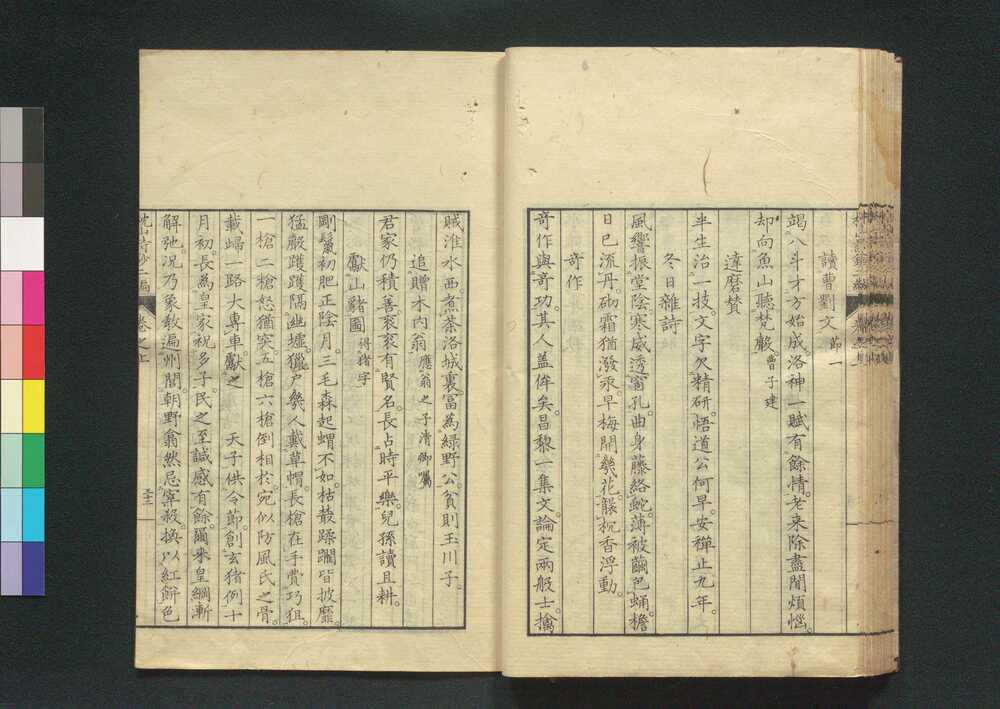 讀曹劉文 節一
竭。八斗才方始成。洛神一賦有餘情。老来除盡閒煩惱。
却向魚山聽梵聲。曹子建
達磨賛
半生治一技。文字欠精研。悟道公何早。安禪止九年。
冬日雜詩
風響振堂陰。寒威透窗孔。曲身藤絡蛇。薄被繭包蛹。檐
日已流丹。砌霜猶潑汞。早梅開幾花。枕香浮動。
奇作
奇作與奇功。其人盖侔矣。昌黎一集文。論定兩般士。擒
賊淮水西。煮茶洛城裏。富為緑野公。貧則玉川子。
追贈木内翁 應翁之子清卿嘱
君家仍積善。衮衮有賢名。長占時平樂。兒孫讀且耕。
獻山豬圖 得豬字
剛鬣初肥正陰月。三毛森起蝟不如。枯䕮蹂躙皆披靡。
猛嚴躩躩隔幽墟。獵户幾人戴草帽。長槍在手費巧狙。
一槍二槍怒猶突。五槍六槍倒相於。宛似防風氏之骨。
載歸一路大專車。獻之 天子供令節。創玄猪例十
月初。長為皇家祝多子。民之至誠感有餘。爾来皇綱漸
解弛。况乃象教遍州閭。朝野翕然忌宰殺。換以紅餅色
卷之上
二十二